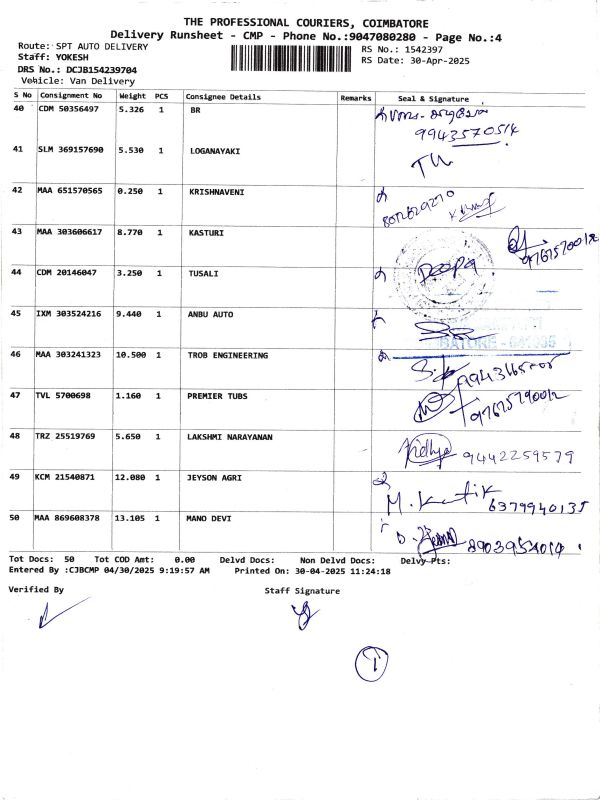 THE PROFESSIONAL COURIERS, COIMBATORE
Delivery Runsheet - CMP - Phone No.:9047080280 - Page No.:4
Route: SPT AUTO DELIVERY
RS No.: 1542397
Staff: YOKESH
RS Date: 30-Apr-2025
DRS No.: DCJB154239704
Vehicle: Van Delivery
S No Consignment No Weight PCS Consignee Details Remarks Seal & Signature
40 CDM 50356497 5.326 1 BR
9943570514
41 SLM 369157690 5.530 1 LOGANAYAKI
42 MAA 651570565 0.250 1 KRISHNAVENI
43 MAA 303606617 8.770 1 KASTURI
44 CDM 20146047 3.250 1 TUSALI Deepa
45 IXM 303524216 9.440 1 ANBU AUTO
46 MAA 303241323 10.500 1 TROB ENGINEERING
47 TVL 5700698 1.160 1 PREMIER TUBS
48 TRZ 25519769 5.650 1 LAKSHMI NARAYANAN Vidhya 9442259579
49 KCM 21540871 12.080 1 JEYSON AGRI M. Kartik 6379940135
50 MAA 869608378 13.105 1 MANO DEVI
Tot Docs: 50 Tot COD Amt: 0.00 Delvd Docs: Non Delvd Docs: Delvy Pts:
Entered By :CJBCMP 04/30/2025 9:19:57 AM Printed On: 30-04-2025 11:24:18
Verified By Staff Signature